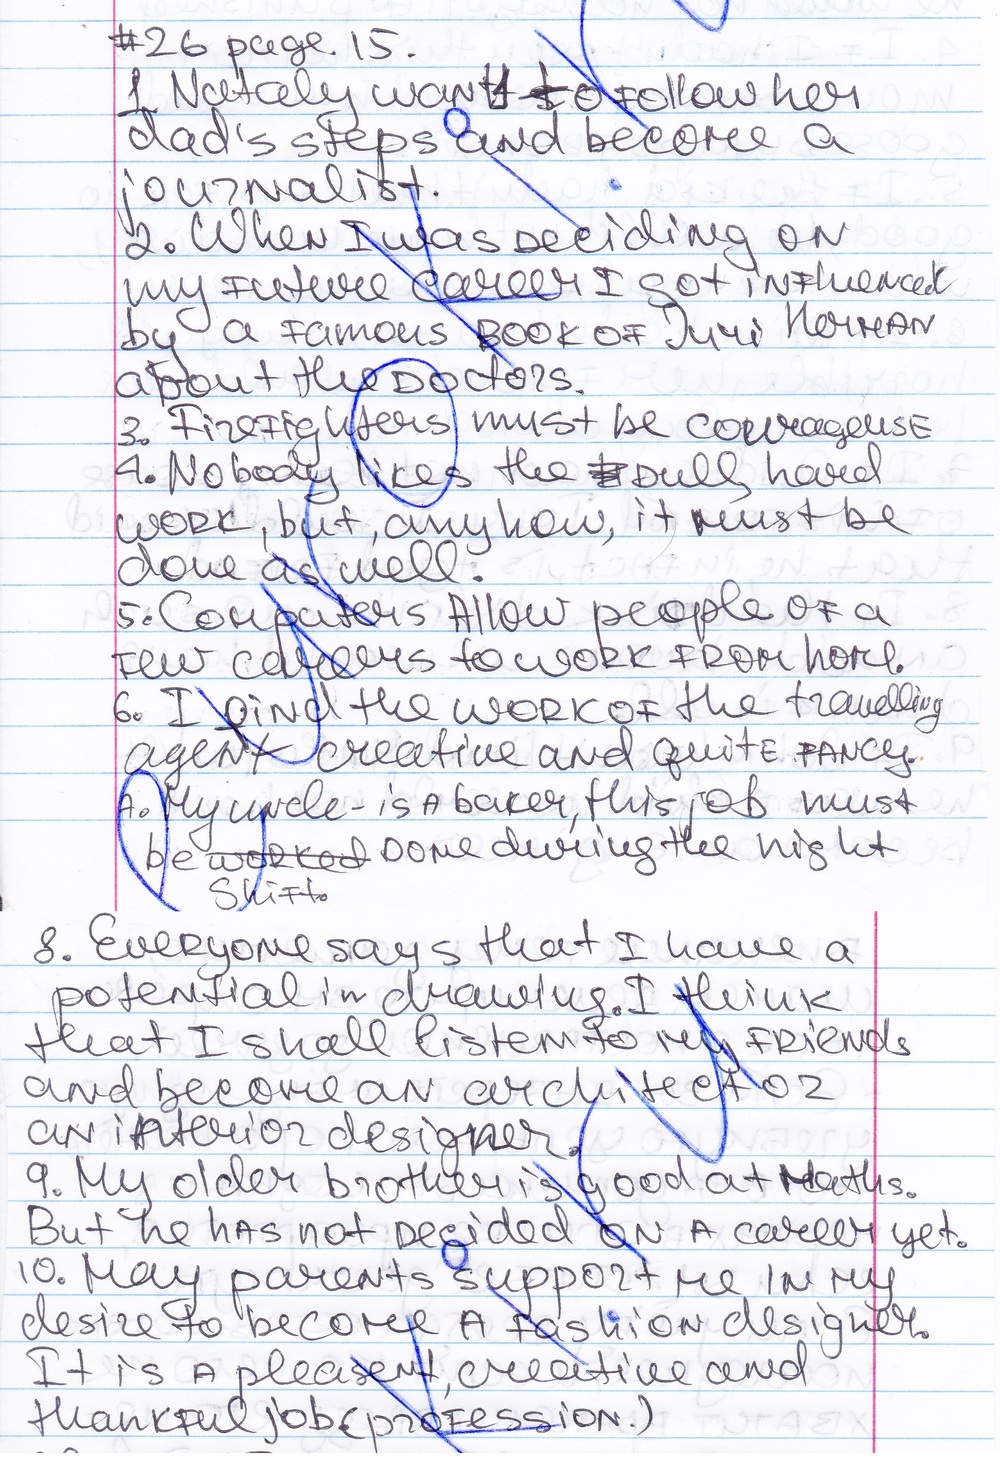 #26 page. 15.
1. Nataly want to follow her
dad's steps and become a
journalist.
2. When I was deciding on
my future career I got influenced
by a famous book of Juri Herman
about the doctors.
3. Firefighters must be courageuse
4. Nobody likes the dull, hard
work, but, anyhow, it must be
done as well.
5. Computers allow people of a
few careers to work from home.
6. I find the work of the travelling
agent creative and quite fancy.
7. My uncle - is a baker, this job must
be worked done during the night
shift.
8. Everyone says that I have a
potential in drawing. I think
that I shall listen to my friends
and become an architect or
an interior designer.
9. My older brother is good at Maths.
But he has not decided on a career yet.
10. May parents support me in my
desire to become a fashion designer.
It is a pleasent, creative and
thankful job (profession.)